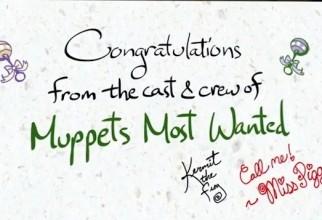 Congratulations
from the cast & crew of
Muppets Most Wanted
Kermit
the
frog
Call me!
~Miss Pigg